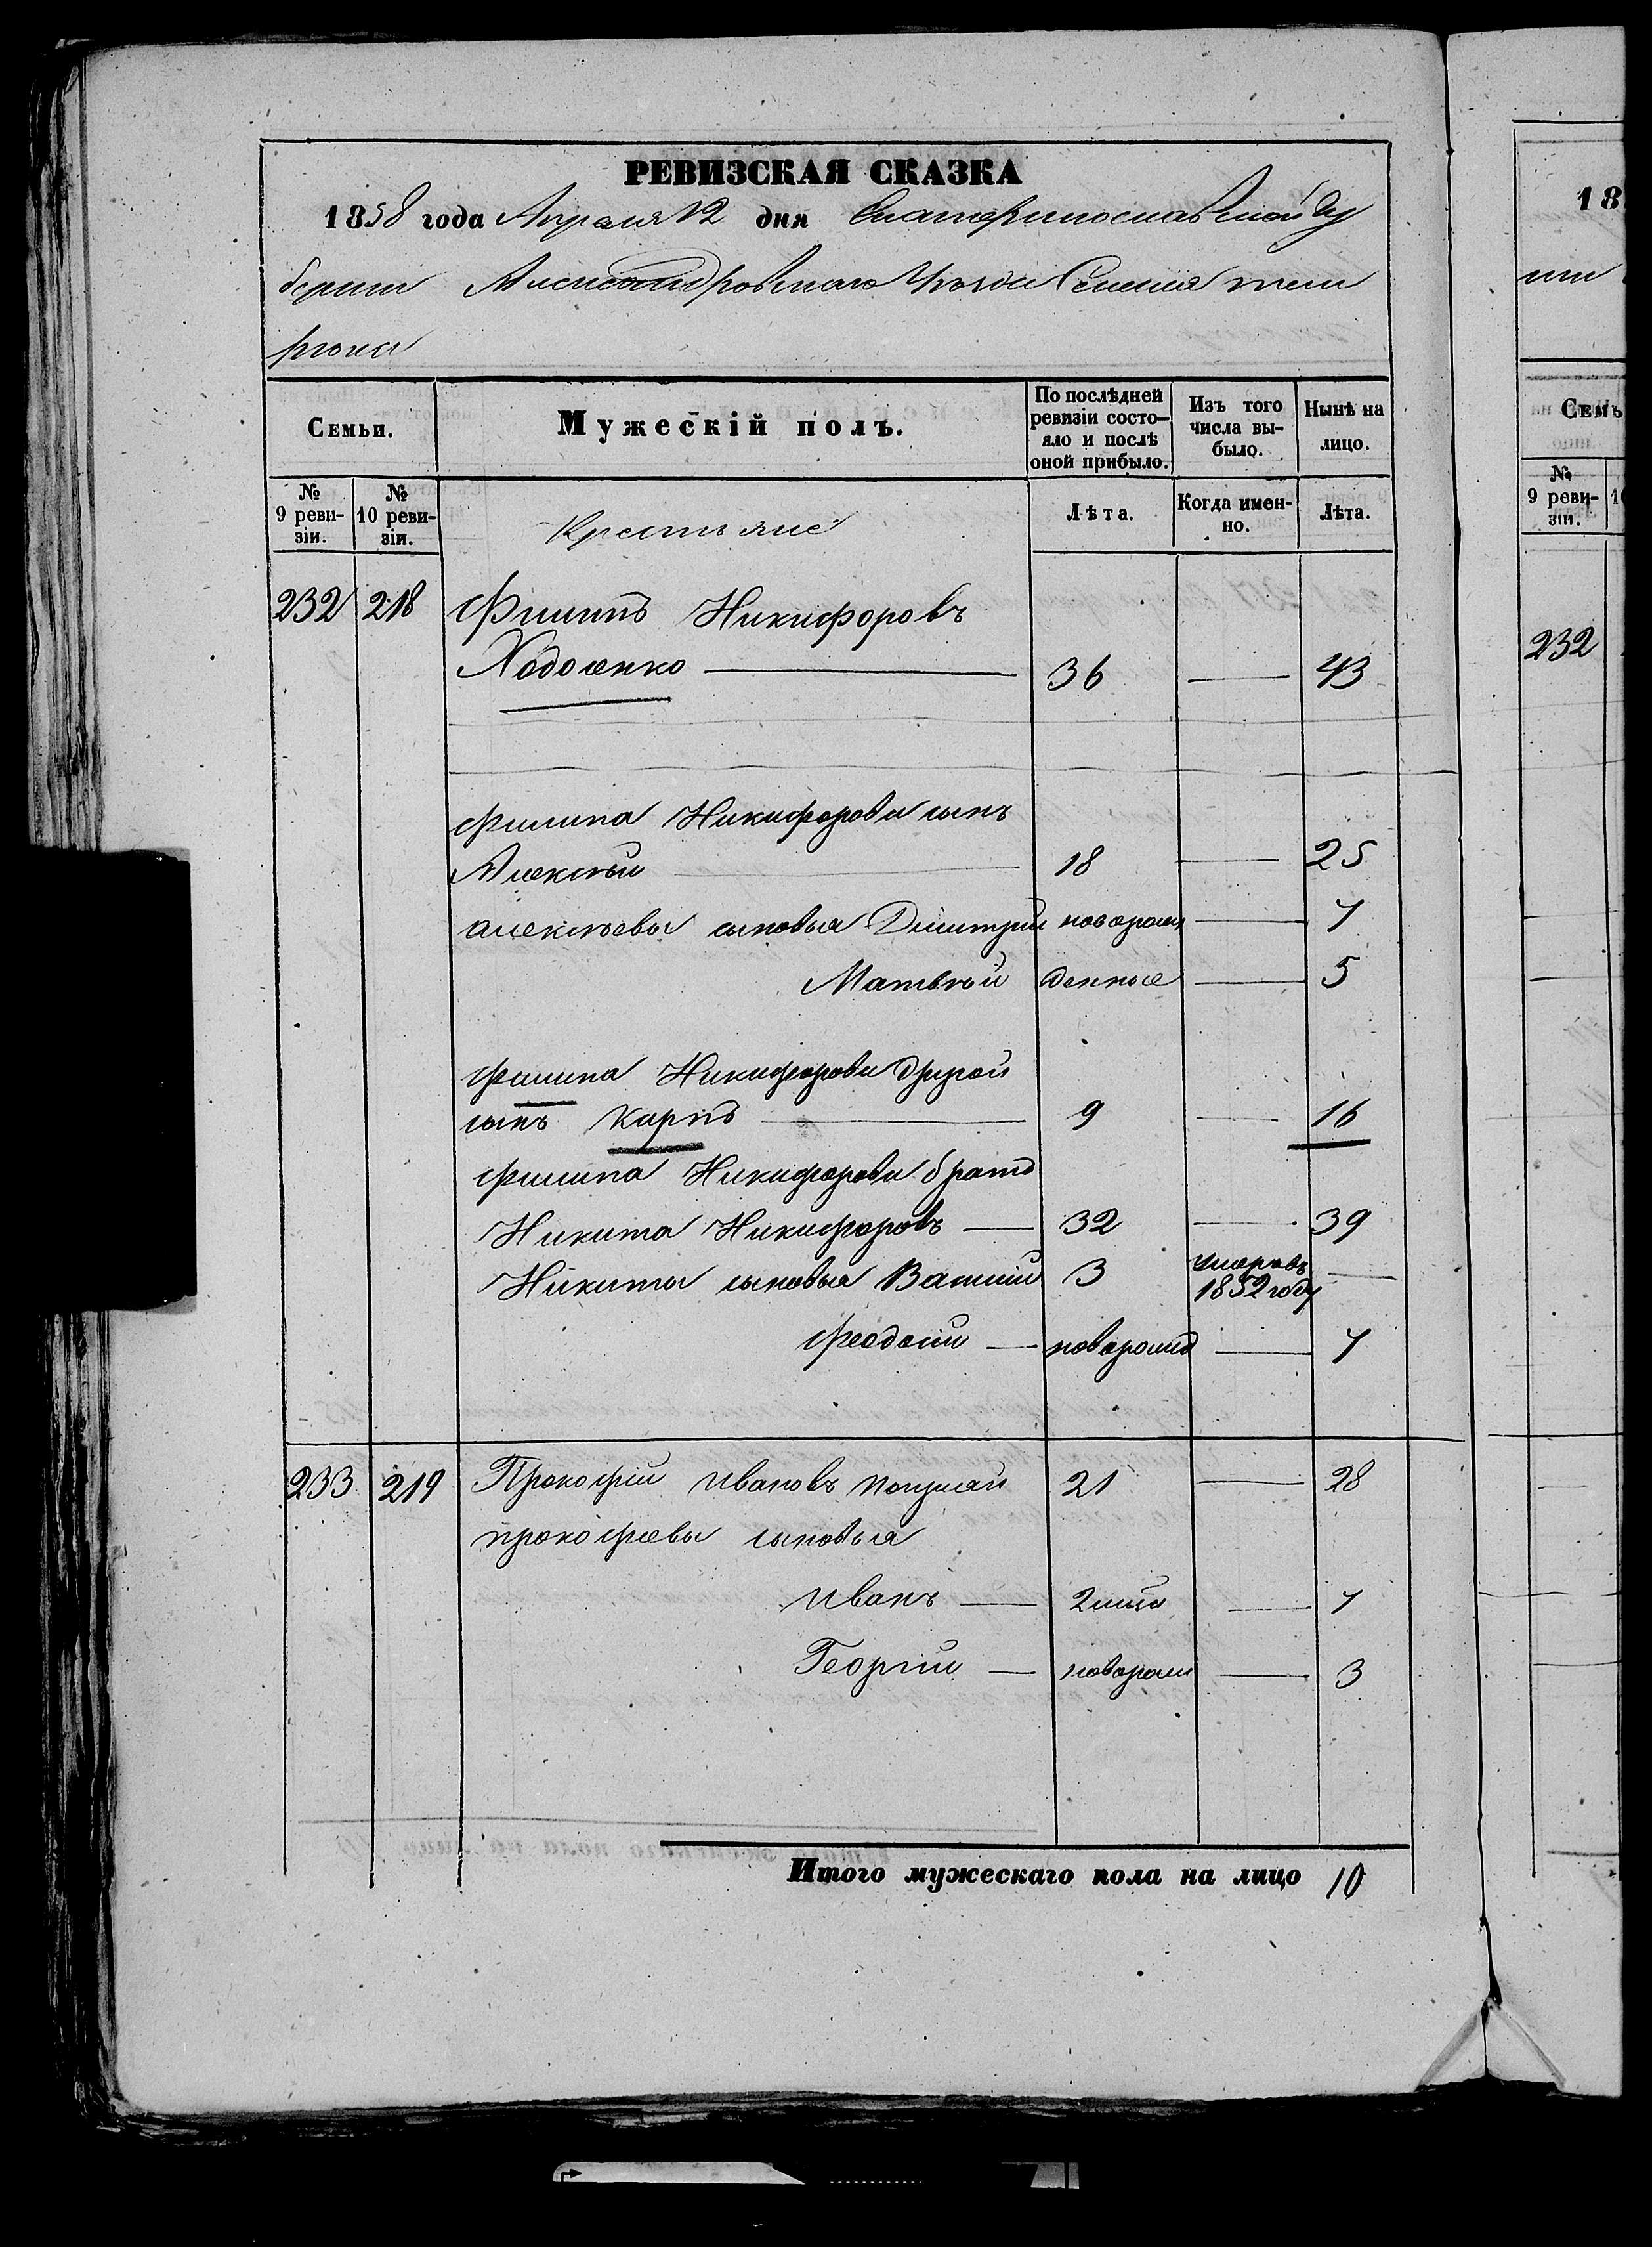 РЕВИЗСКАЯ СКАЗКА
1858 года Апреля 12 дня Екатеринославской Гу
бернии Александровскаго Уезда Селения тем
рюка
Семьи.
Мужескій полъ.
По послѣдней ревизіи состо-яло и послѣ оной прибыло.
Изъ того числа вы-было.
Нынѣ на лицо.
№ 9 реви-зіи.
№ 10 реви-зіи.
Крестьяне
Лѣта.
Когда имен-но.
Лѣта.
232 218 Филипъ Никифоровъ
Ходоенко 36 43
Филипа Никифорова сынъ
Алексѣй 18 25
Алексѣевы сыновья Дмитрій новорож 7
Матвѣй денные 5
Филипа Никифорова другой
сынъ Карпъ 9 16
Филипа Никифорова братъ
Никита Никифоровъ 32 39
Никиты сыновья Василій 3 умеръ въ 1852 году
Феодосій новорожд 7
233 219 Прокофій Ивановъ 21 28
Прокофьевы сыновья
Иванъ 7
Георгій новорож 3
Итого мужескаго пола на лицо 10
18
нии
Семь
№ 9 реви-зіи.
232